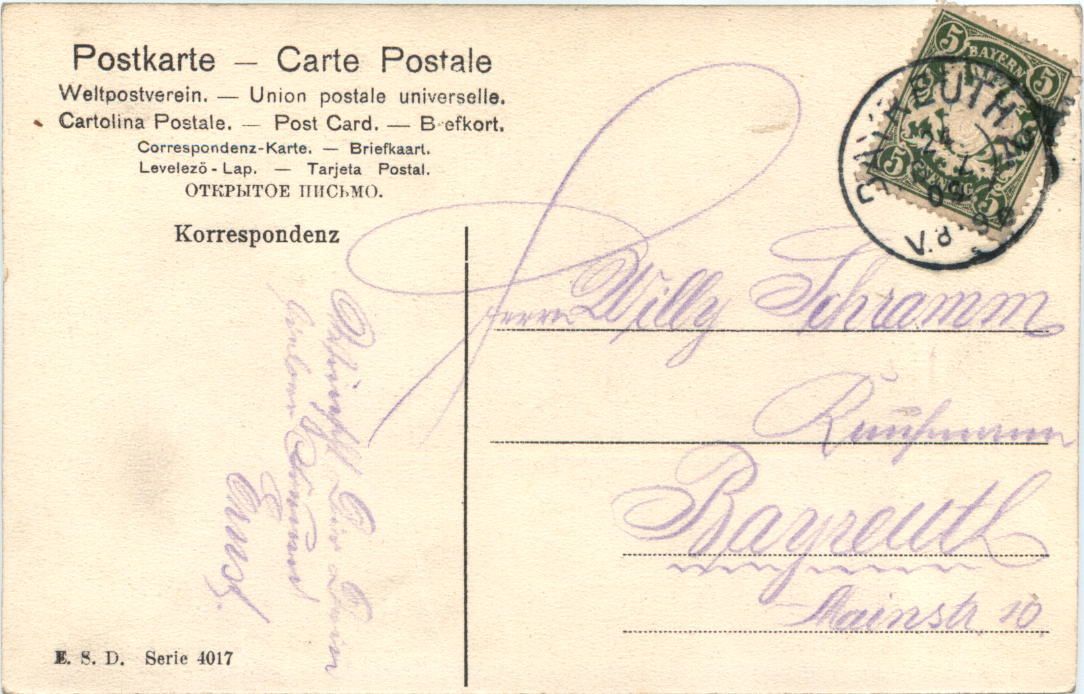 Postkarte — Carte Postale
Weltpostverein. — Union postale universelle.
Cartolina Postale. — Post Card. — B efkort.
Correspondenz-Karte. — Briefkaart.
Levelező-Lap. — Tarjeta Postal.
ОТКРЫТОЕ ПИСЬМО.
Korrespondenz
5 BAYERN 5
5 PFENNIG 5
BAYREUTH
Herrn Willy Schramm
Kaufmann
Bayreuth
Mainstr. 10
Ernst.
E. S. D. Serie 4017